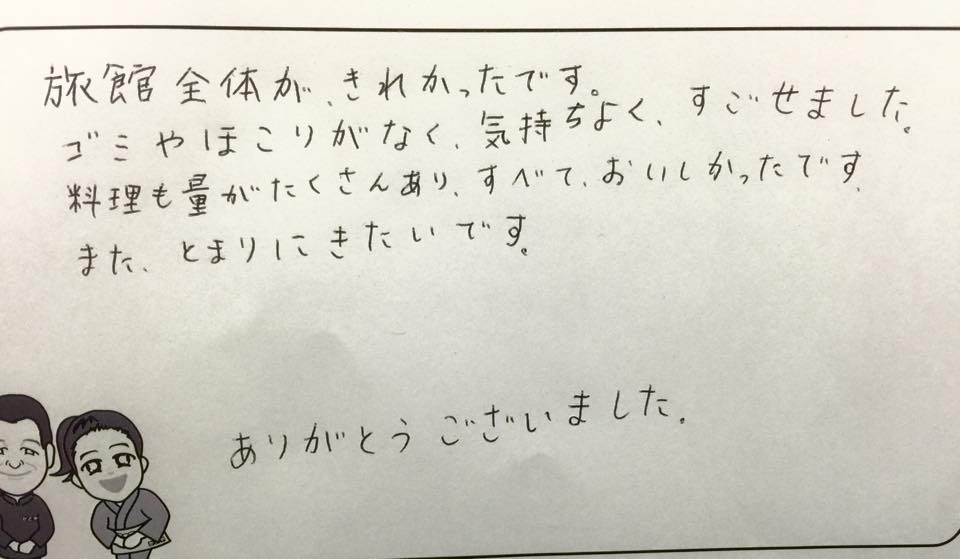 旅館全体が、きれかったです。
ゴミやほこりがなく、気持ちよく、すごせました。
料理も量がたくさんあり、すべて、おいしかったです。
また、とまりにきたいです。
ありがとうございました。